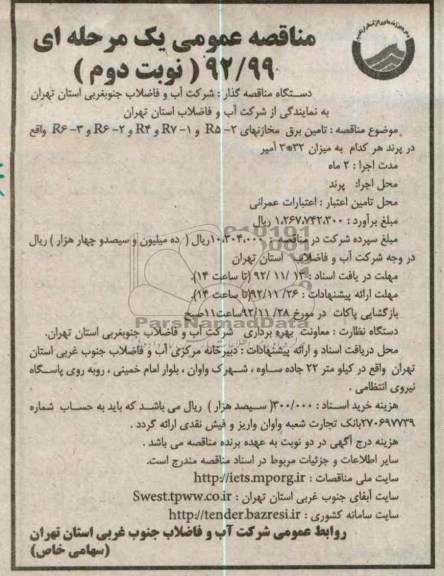 مناقصه عمومی یک مرحله ای
۹۲/۹۹ ( نوبت دوم )
دستگاه مناقصه گذار : شرکت آب و فاضلاب جنوبغربی استان تهران
به نمایندگی از شرکت آب و فاضلاب استان تهران
موضوع مناقصه : تامین برق مخازنهای R۵-۲ و R۷-۱ و R۴ و R۶-۲ و R۶-۳ واقع
در پرند هر کدام به میزان ۳۲*۳ آمپر
مدت اجرا : ۲ ماه
محل اجرا: پرند
محل تامین اعتبار : اعتبارات عمرانی
مبلغ برآورد : ۱،۲۶۷،۷۴۲،۳۰۰ ریال
مبلغ سپرده شرکت در مناقصه : ۱۰،۳۰۴،۰۰۰ریال ( ده میلیون و سیصدو چهار هزار ) ریال
در وجه شرکت آب و فاضلاب استان تهران
مهلت در یافت اسناد : ۱۳ /۱۱ /۹۲ (تا ساعت ۱۴).
مهلت ارائه پیشنهادات : ۲۶/ ۹۲/۱۱(تا ساعت ۱۴).
بازگشایی پاکات در مورخ ۲۸/ ۹۲/۱۱ساعت۱۱صبح
دستگاه نظارت : معاونت بهره برداری شرکت آب و فاضلاب جنوبغربی استان تهران.
محل دریافت اسناد و ارائه پیشنهادات : دبیرخانه مرکزی آب و فاضلاب جنوب غربی استان
تهران واقع در کیلو متر ۲۲ جاده ساوه ، شهرک واوان ، بلوار امام خمینی ، روبه روی پاسگاه
نیروی انتظامی .
هزینه خرید اسناد : ۳۰۰/۰۰۰( سیصد هزار ) ریال می باشد که باید به حساب شماره
۲۷۰۶۹۷۷۳۹بانک تجارت شعبه واوان واریز و فیش نقدی ارائه گردد .
هزینه درج آگهی در دو نوبت به عهده برنده مناقصه می باشد .
سایر اطلاعات و جزئیات مربوط در اسناد مناقصه مندرج است.
سایت ملی مناقصات : http://iets.mporg.ir
سایت آبفای جنوب غربی استان تهران : Swest.tpww.co.ir
سایت سامانه کشوری : http://tender.bazresi.ir
روابط عمومی شرکت آب و فاضلاب جنوب غربی استان تهران
(سهامی خاص)
ParsNamadData